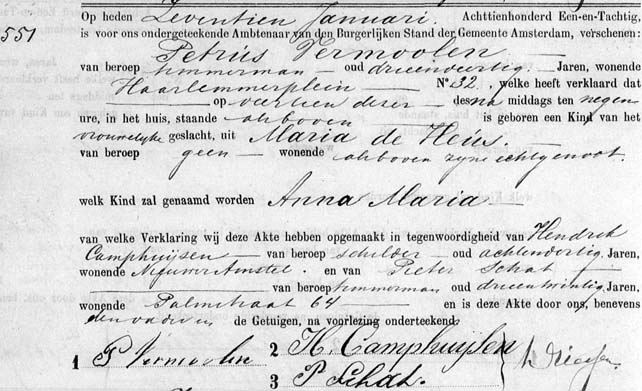 551
Op heden Zeventien Januari. Achttienhonderd Een-en-Tachtig,
is voor ons ondergeteekende Ambtenaar van den Burgerlijken Stand der Gemeente Amsterdam, verschenen:
Petrus Vermoolen
van beroep timmerman oud drieenveertig Jaren, wonende
Haarlemmerplein No. 32, welke heeft verklaard dat
op veertien dezer des na middags ten negen
ure, in het huis, staande alsboven is geboren een Kind van het
vrouwelijke geslacht, uit Maria de Heus.
van beroep geen wonende alsboven zijne echtgenoot.
welk Kind zal genaamd worden Anna Maria
van welke Verklaring wij deze Akte hebben opgemaakt in tegenwoordigheid van Hendrik
Camphuijsen van beroep schilder oud achtendertig Jaren,
wonende Nieuwer Amstel. en van Pieter Schat
van beroep timmerman oud drieentwintig Jaren,
wonende Palmstraat 64 en is deze Akte door ons, benevens
den vader en de Getuigen, na voorlezing onderteekend.
1 P Vermoolen 2 H. Camphuijsen
3 P Schat.